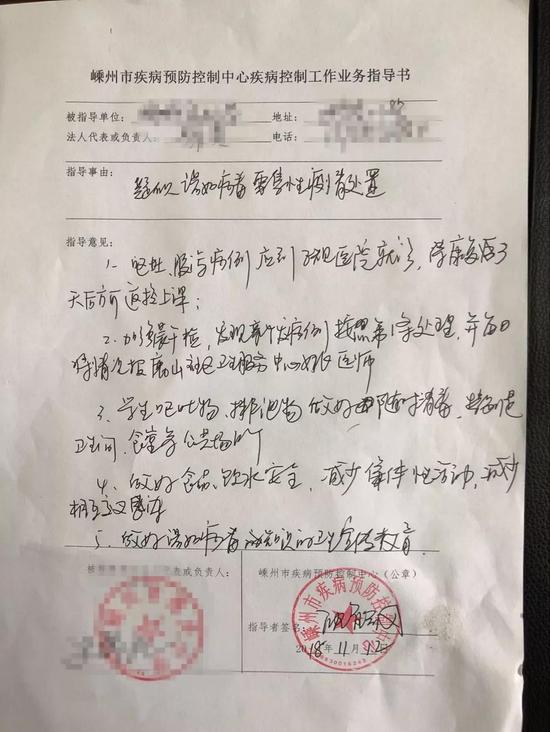 嵊州市疾病预防控制中心疾病控制工作业务指导书
被指导单位： 地址：
法人代表或负责人： 电话：
指导事由：
疑似诺如病毒 聚集性疫情处置
指导意见：
1、呕吐、腹泻病例应到正规医院就诊，康复后3
天后方可返校上课；
2、加强晨午检，发现新发病例按照第1条处理，并每日
将情况报 社区卫生服务中心 医师
3、学生呕吐物、排泄物做好 随时消毒，特别是
卫生间、食堂等公共场所
4、做好食品、饮水安全，减少集体性活动，减少
相互交叉感染
5、做好诺如病毒 知识的卫生宣传教育.
表或负责人： 嵊州市疾病预防控制中心（公章）
嵊州市疾病预防控制中心
指导者签名：
2018年11月12日